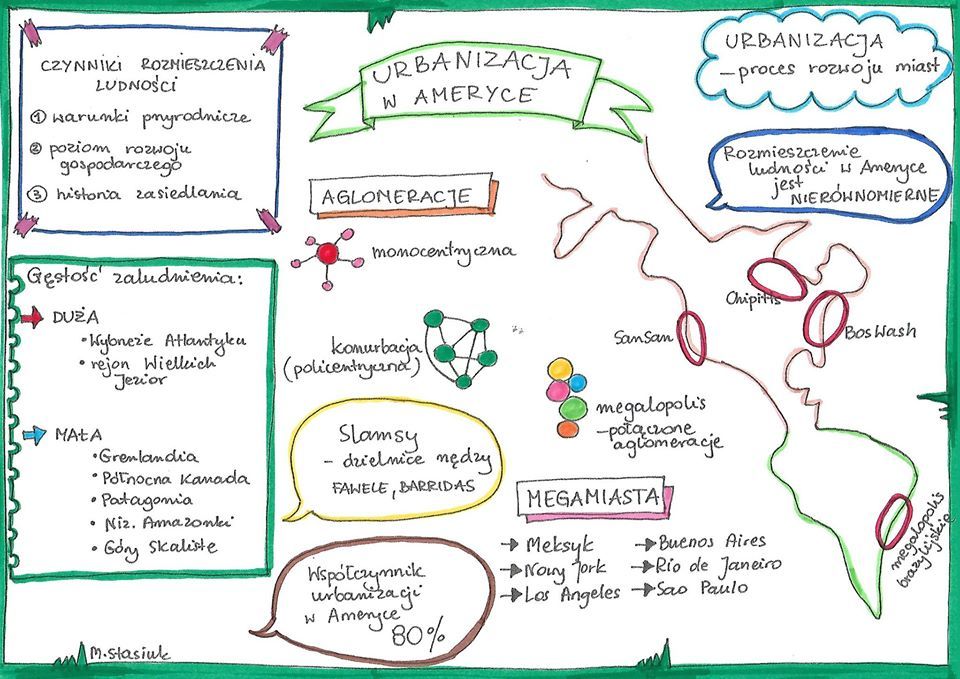 CZYNNIKI ROZMIESZCZENIA
LUDNOŚCI
① warunki przyrodnicze
② poziom rozwoju
gospodarczego
③ historia zasiedlania
URBANIZACJA
W AMERYCE
URBANIZACJA
– proces rozwoju miast
Rozmieszczenie
ludności w Ameryce
jest
NIERÓWNOMIERNE
AGLOMERACJE
monocentryczna
konurbacja
(policentryczna)
megalopolis
– połączone
aglomeracje
Gęstość zaludnienia:
→ DUŻA
• Wybrzeże Atlantyku
• rejon Wielkich
Jezior
→ MAŁA
• Grenlandia
• Północna Kanada
• Patagonia
• Niz. Amazonki
• Góry Skaliste
Slamsy
– dzielnice nędzy
FAWELE, BARRIDAS
Współczynnik
urbanizacji
w Ameryce
80%
MEGAMIASTA
→ Meksyk
→ Nowy Jork
→ Los Angeles
→ Buenos Aires
→ Rio de Janeiro
→ Sao Paulo
Chipitts
SanSan
BosWash
megalopolis
brazylijskie
M. Stasiuk